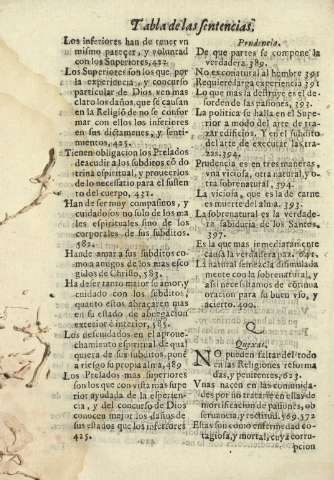 Tabla de las sentencias.
Los inferiores han de tener vn
mismo parecer, y voluntad
con los Superiores, 422.
Los Superiores son los que, por
la experiencia, y concurso
particular de Dios, ven mas
claro los daños, que se causan
en la Religiõ de no se confor
mar con ellos los inferiores
en sus dictamenes, y senti-
mientos, 425.
Tienen obligacion los Prelados
de acudir a los subditos cõ do
trina espiritual, y proueerlos
de lo necessario para el susten
to del cuerpo, 421.
Han de ser muy compasiuos, y
cuidadosos no solo de los ma
les espirituales sino de los
corporales de sus subditos.
582.
Hande amar a sus subditos co
mo a amigos de los mas esco
gidos de Christo, 583.
Ha de ser tanto mayor lo amor, y
cuidado con los subditos,
quanto estos abraçaren mas
en su estado de abnegacion
exterior è interior, 585.
Los descuidados en el aproue-
chamiento espiritual de qual
quiera de sus subditos, ponẽ
a riesgo su propia alma, 489
Los Prelados mas superiores
son los que con vista mas supe
rior ayudada de la experien-
cia, y del concurso de Dios
conocen mejor los daños de
sus estados que los inferiores
425.
Prudencia.
De que partes se compone la
verdadera. 389.
No es connatural al hombre 391
Requiere larga experiencia 391
Lo que mas la destruye es el de-
sorden de las pasiones, 393.
La politica se halla en el Supe-
rior a modo del arte de tra-
zar edificios. Y en el subdito
del arte de executar las tra-
zas, 394.
Prudencia es en tres maneras,
vna viciosa, otra natural, y o-
tra sobrenatural, 394.
La viciosa, que es la de carne
es muerte del alma. 393.
La sobrenatural es la verdade-
ra sabiduria de los Santos,
397.
Es la que mas inmediatamente
causa la verdadera paz. 641.
La natural se mezcla disimulada
mente con la sobrenatural, y
assi necessitamos de continua
oracion para su buen vso, y
acierto. 400.
Q
Quexas.
NO pueden faltar del todo
en las Religiones reforma
das, y penitentes, 623.
Vnas nacen en las comunida-
des por no tratarse en ellas de
mortificacion de pasiones, ob
seruancia, y rectitud. 569. 572
Estas son como enfermedad co-
tagiosa, y mortal, cuya corru-
pcion